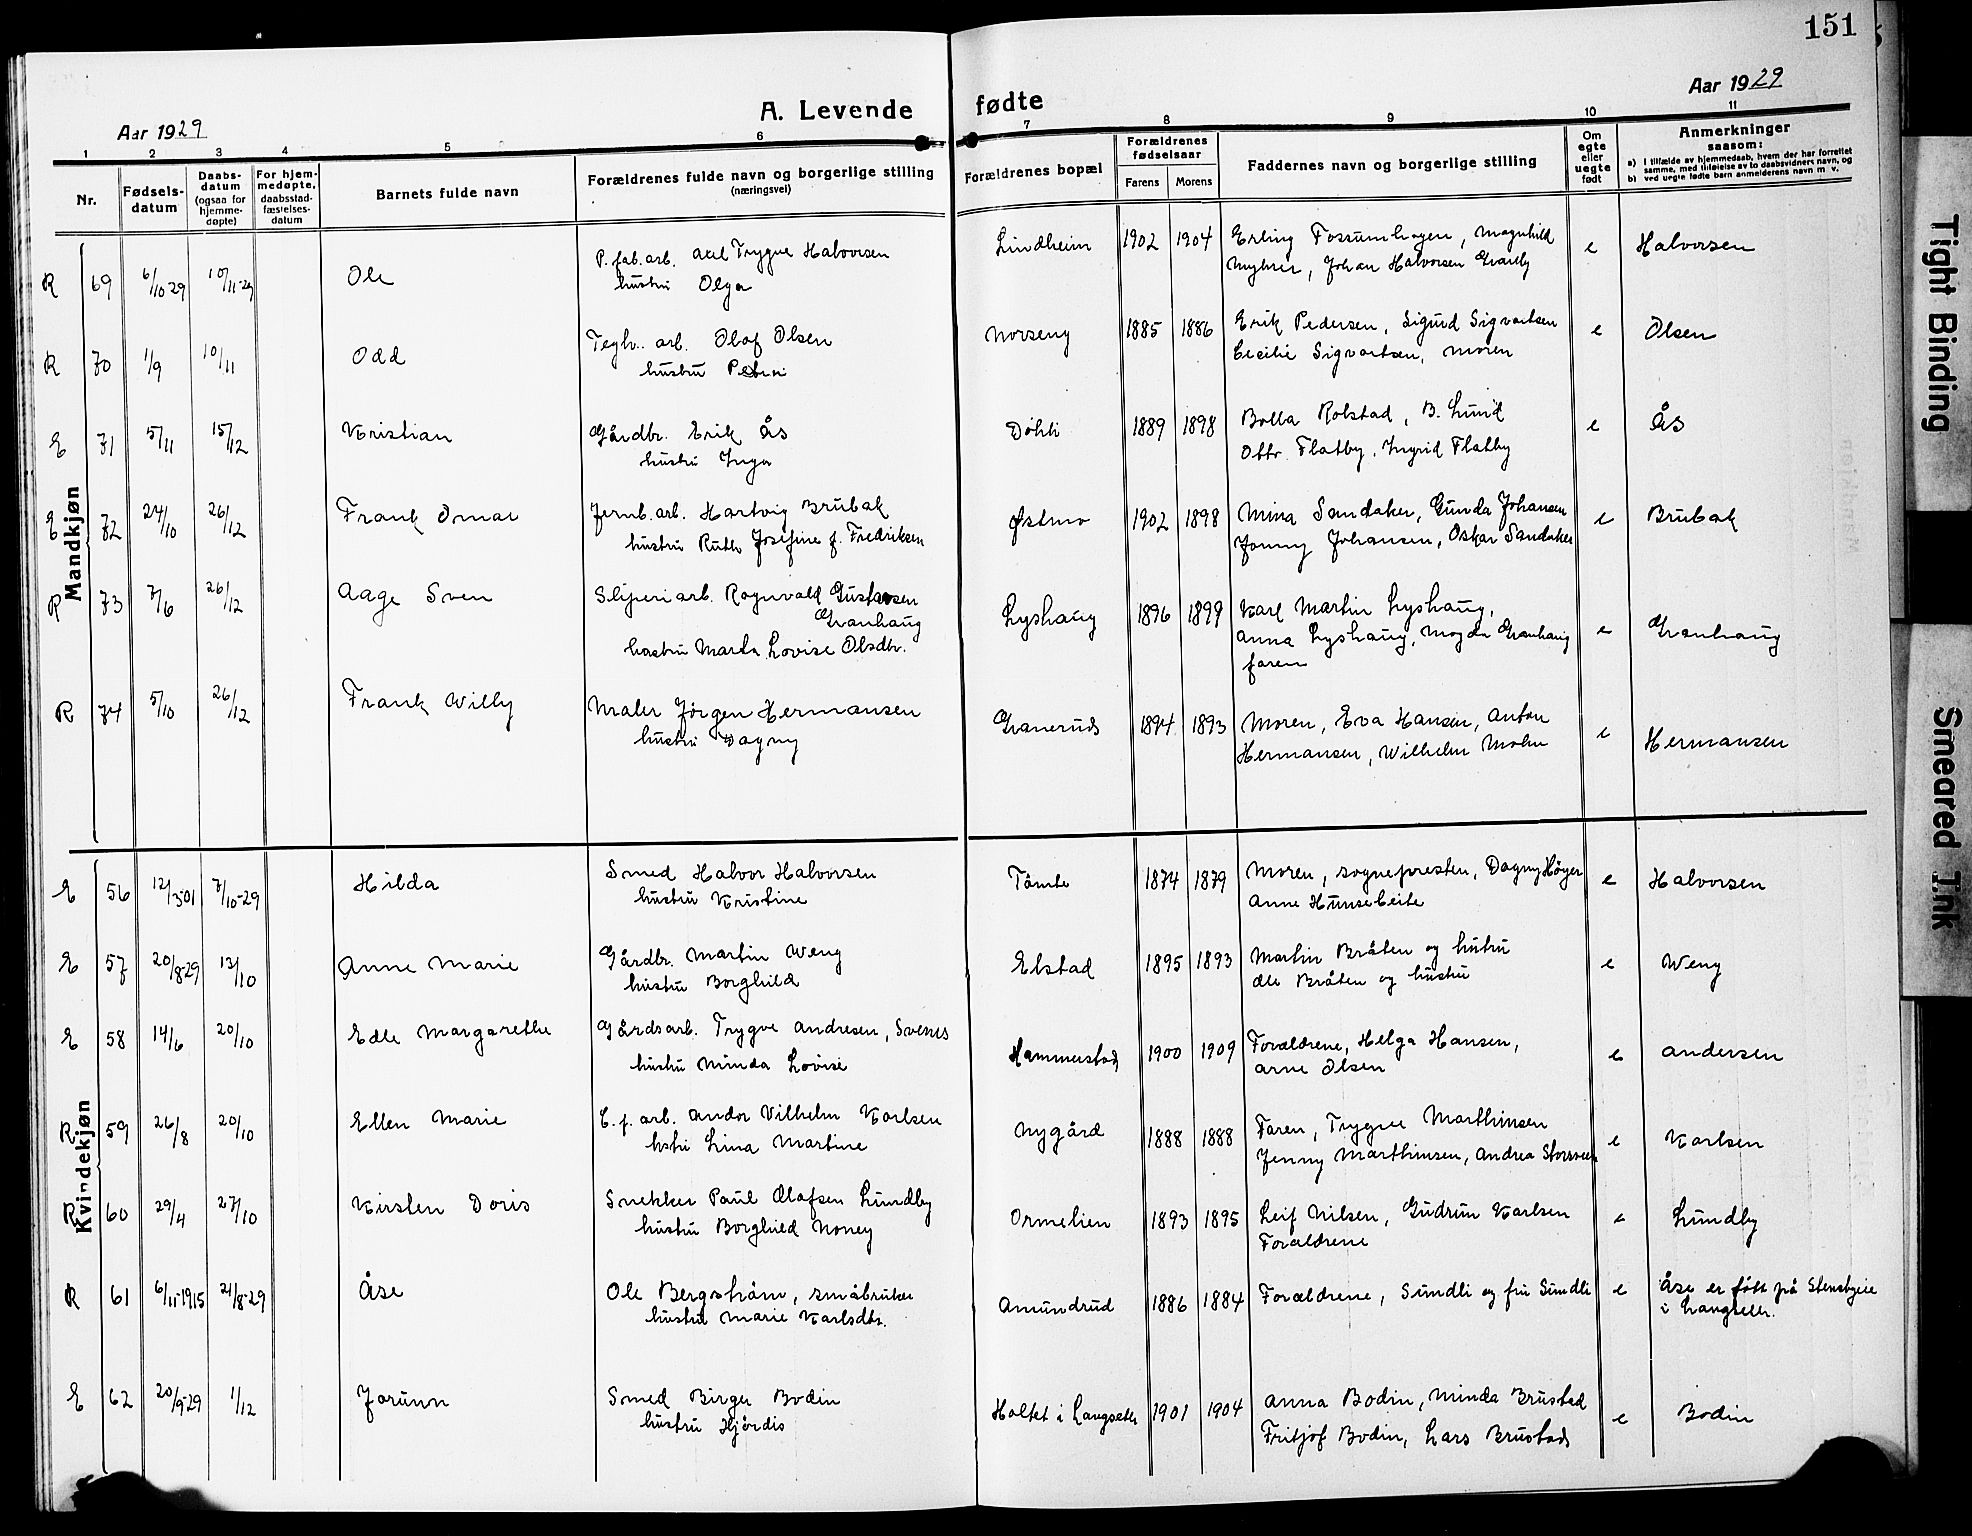 151
Aar 1929
A. Levende fødte
Aar 1929
1 2 3 4 5 6 7 8 9 10 11
Nr.
Fødsels-datum
Daabs-datum (ogsaa for hjemme-døpte)
For hjem-medøpte, daabsstad-fæstelses-datum
Barnets fulde navn
Forældrenes fulde navn og borgerlige stilling (næringsvei)
Forældrenes bopæl
Forældrenes fødselsaar
Farens Morens
Faddernes navn og borgerlige stilling
Om egte eller uegte født
Anmerkninger saasom:
a) I tilfælde av hjemmedaab, hvem der har forrettet samme, med tilføielse av to daabsvidners navn, og
b) ved uegte fødte barn anmelderens navn m. v.
Mandkjøn
R 69 6/10 29 10/11-29 Ole P. fab. arb. Axel Trygve Halvorsen Lindheim 1902 1904 Erling Fossumhagen, Magnhild e Halvorsen
hustru Olga Myhrer, Johan Halvorsen Gravly
R 70 1/9 10/11 Odd Teglv. arb. Olaf Olsen Norseng 1885 1886 Erik Pedersen, Sigurd Sigvartsen e Olsen
hustru Petra Cecilie Sigvartsen, moren
E 71 5/11 15/12 Kristian Gårdbr. Erik Ås Døhli 1889 1898 Bolla Rolstad, B. Lund e Ås
hustru Inga Ottr. Flatby, Ingrid Flatby
E 72 24/10 26/12 Frank Omar Jernb. arb. Hartvig Brubak Østmo 1902 1898 Mina Sandaker, Gunda Johansen e Brubak
hustru Ruth Josefine f. Fredriksen Jonny Johansen, Oskar Sandaker
R 73 7/6 26/12 Aage Sven Sliperiarb. Ragnvald Gustavsen Granhaug Lyshaug 1896 1899 Karl Martin Lyshaug, e Granhaug
hustru Marta Lovise Olsdtr. Anna Lyshaug, Magda Granhaug
faren
R 74 5/10 26/12 Frank Willy Maler Jørgen Hermansen Granerud 1894 1893 Moren, Eva Hansen, Anton e Hermansen
hustru Dagny Hermansen, Wilhelm Mohn
Kvindekjøn
E 56 12/3-01 7/10-29 Hilda Smed Halvor Halvorsen Tømte 1874 1879 Moren, sognepresten, Dagny Høyer e Halvorsen
hustru Kristine Anne Hunsebeite
E 57 20/8-29 13/10 Anne Marie Gårdbr. Martin Weng Elstad 1895 1893 Martin Bråten og hustru e Weng
hustru Borghild Ole Bråten og hustru
E 58 14/6 20/10 Edle Margarethe Gårdsarb. Trygve Andresen, Svenes Hammerstad 1900 1909 Forældrene, Helga Hansen, e Andersen
hustru Minda Lovise Arne Olsen
R 59 26/8 20/10 Ellen Marie C. f. arb. Andor Vilhelm Karlsen Nygård 1888 1888 Faren, Trygve Marthinsen e Karlsen
hstr Lina Martine Jenny Marthinsen, Andrea Storsveen
R 60 29/4 27/10 Kirsten Doris Snekker Paul Olafsen Lundby Ormelien 1893 1895 Leif Nilsen, Gudrun Karlsen e Lundby
hustru Borghild Noney Forældrene
R 61 6/11-1915 21/8-29 Åse Ole Bergstrøm, småbruker Amundrud 1886 1884 Forældrene, Sundli og fru Sundli e Åse er født på Stensbyeie
hustru Marie Karlsdtr. i Langseter.
E 62 20/9-29 1/12 Jorunn Smed Birger Bodin Holtet i Langseter 1901 1904 Anna Bodin, Minda Brustad e Bodin
hustru Hjørdis Fritjof Bodin, Lars Brustad
Tight Binding
Smeared Ink